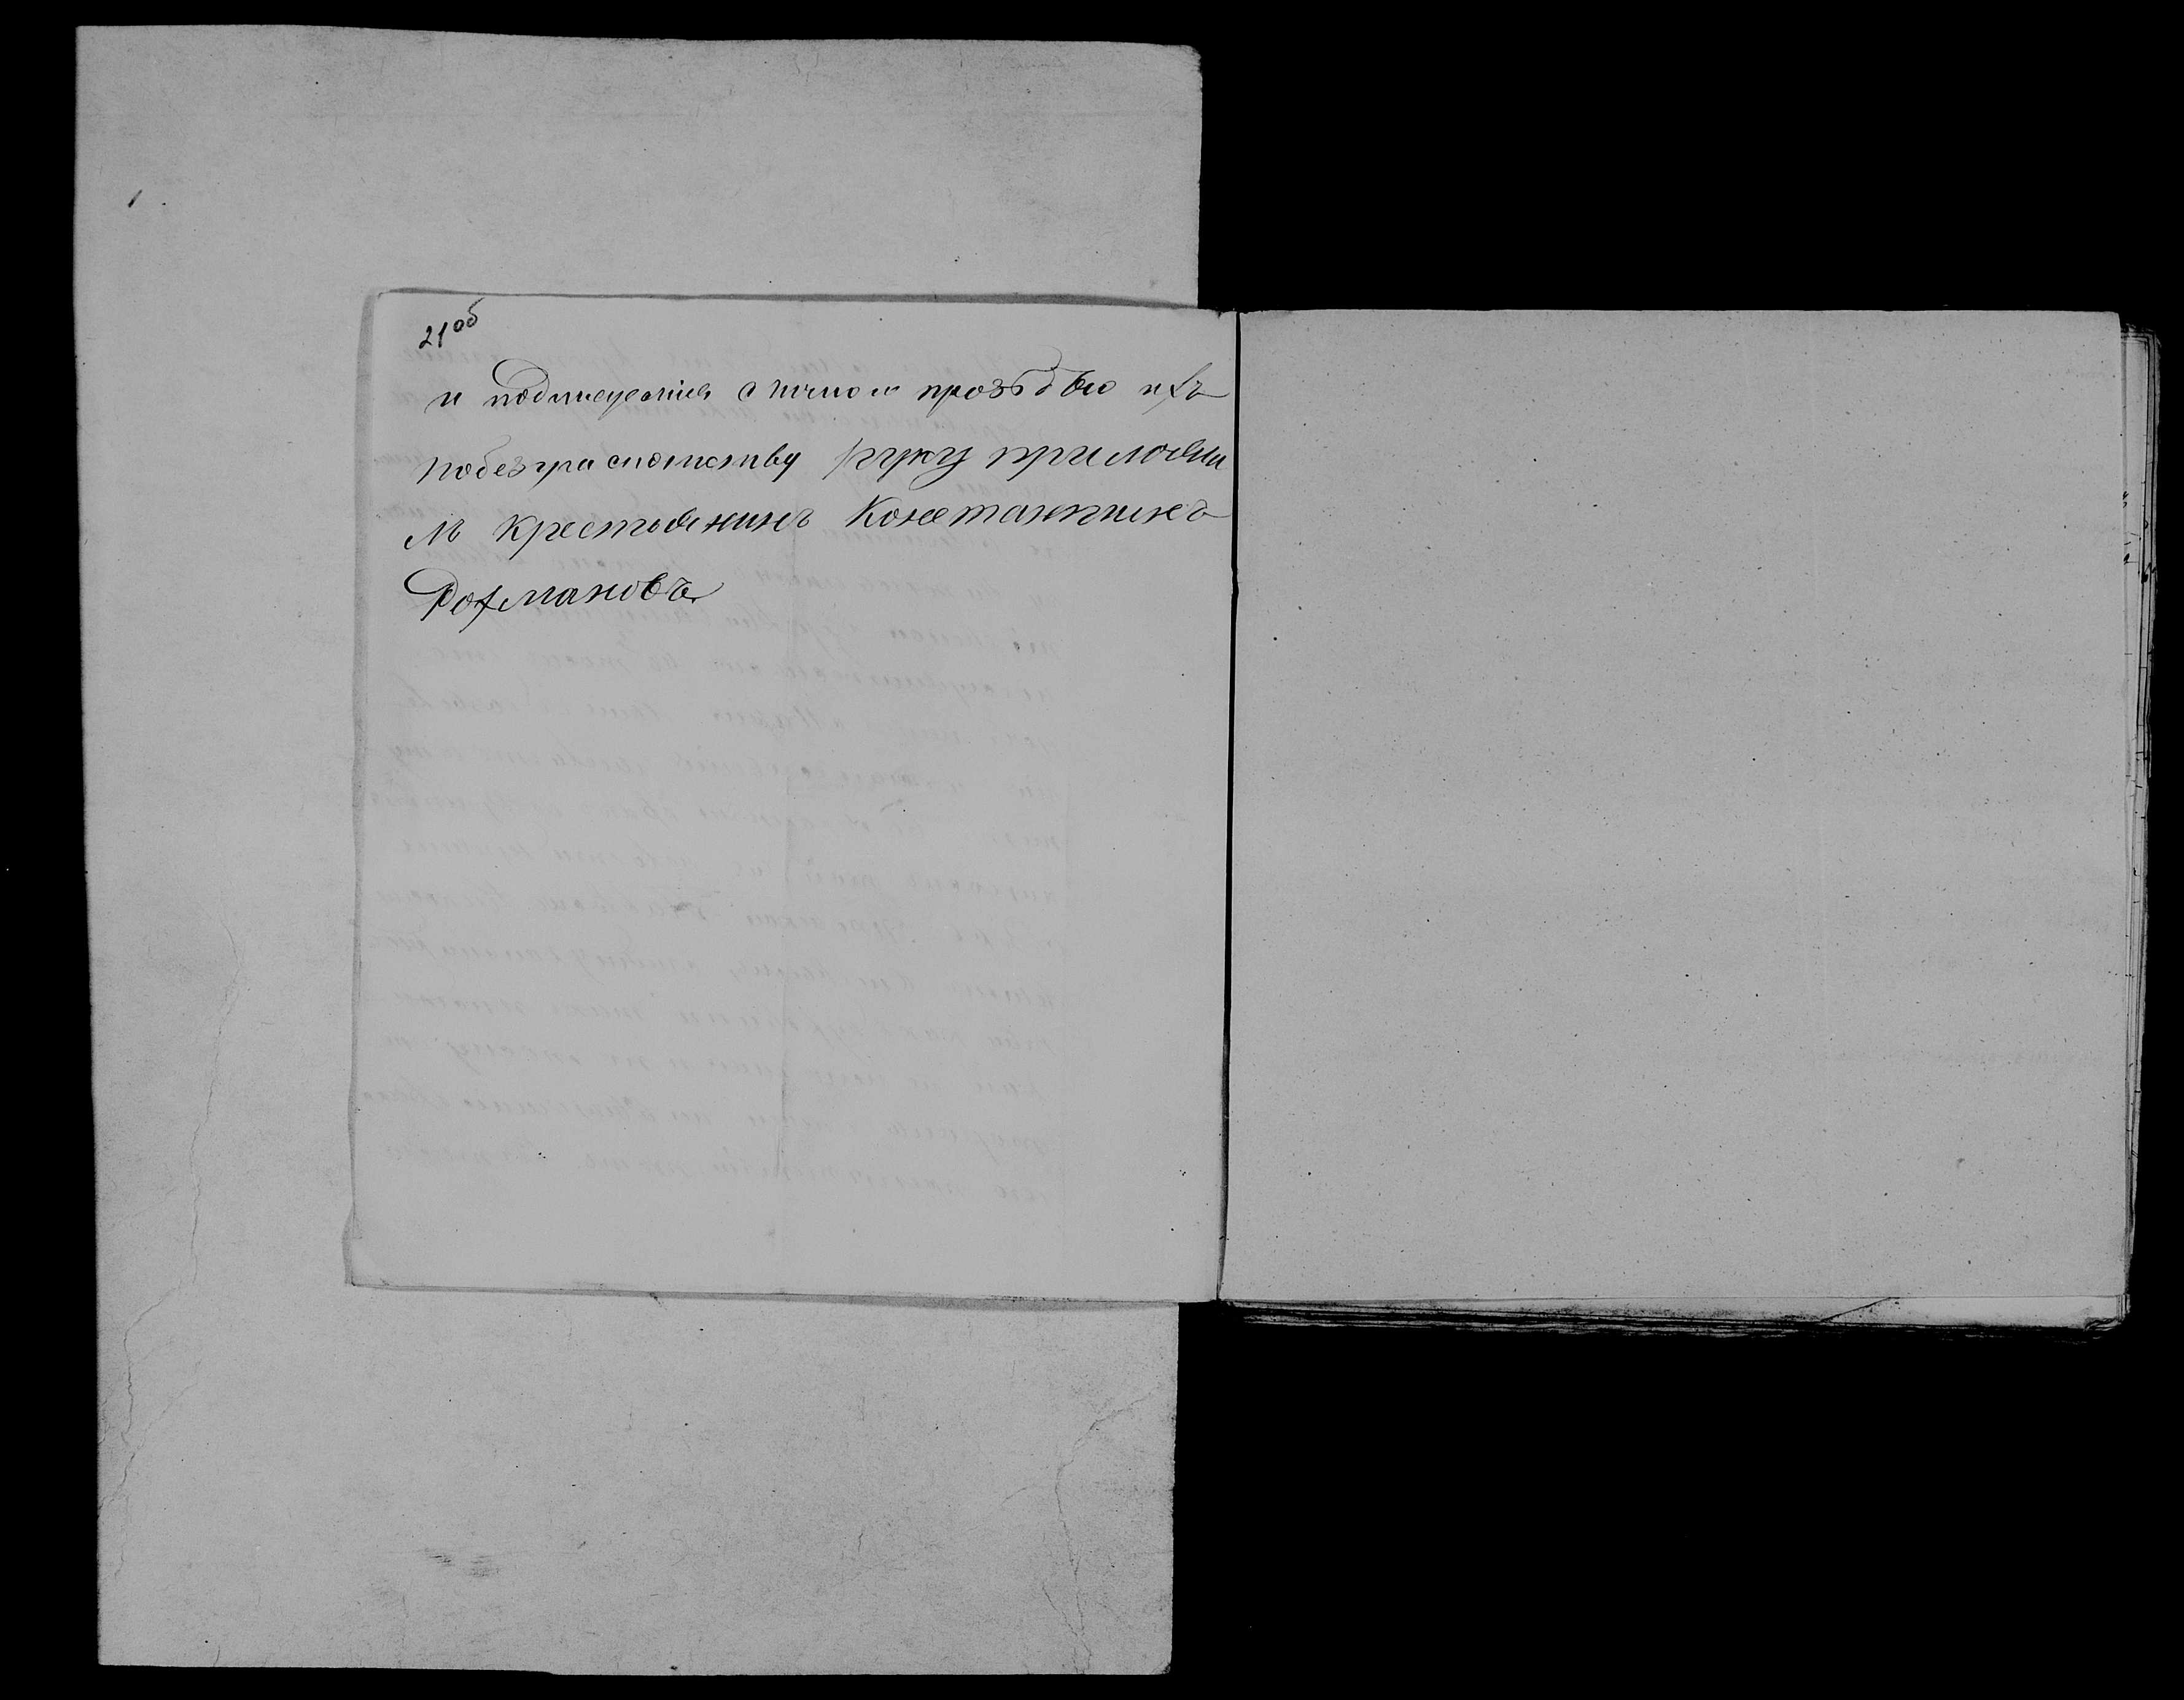 21об
и подписался с личною прозбою ихъ
побезграмотству руку приложи
лъ крестьянинъ Константинъ
Рохмановъ